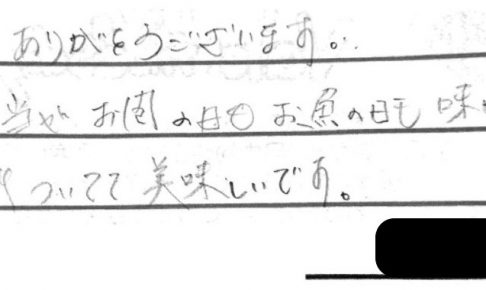 ありがとうございます。
当が お肉の日も お魚の日も 味
ついてて 美味しいです。